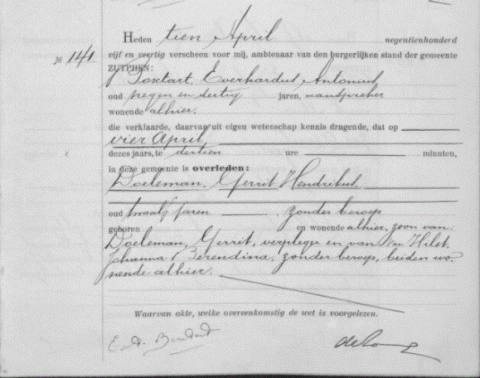 Heden tien April negentienhonderd
№ 141. vijf en veertig verscheen voor mij, ambtenaar van den burgerlijken stand der gemeente
ZUTPHEN:
Everhardus Antonius
oud negen en dertig jaren,
wonende alhier.
die verklaarde, daarvan uit eigen wetenschap kennis dragende, dat op
vier April
dezes jaars, te dertien ure minuten,
in deze gemeente is overleden:
Doeleman, Gerrit Hendrikus,
oud twaalf jaren, zonder beroep
geboren en wonende alhier, zoon van
Doeleman, Gerrit, verpleger en van
Johanna Berendina, zonder beroep, beiden wo-
nende alhier.
Waarvan akte, welke overeenkomstig de wet is voorgelezen.